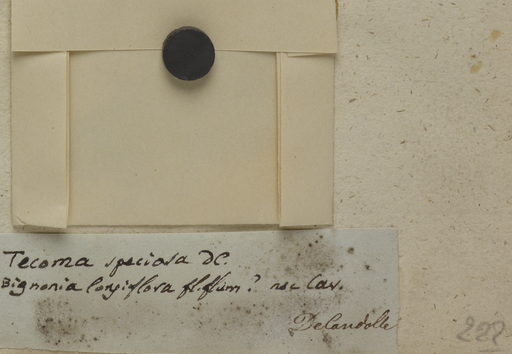 Tecoma speciosa DC.
Bignonia longiflora fl. flum? non Cav.
Decandolle
222